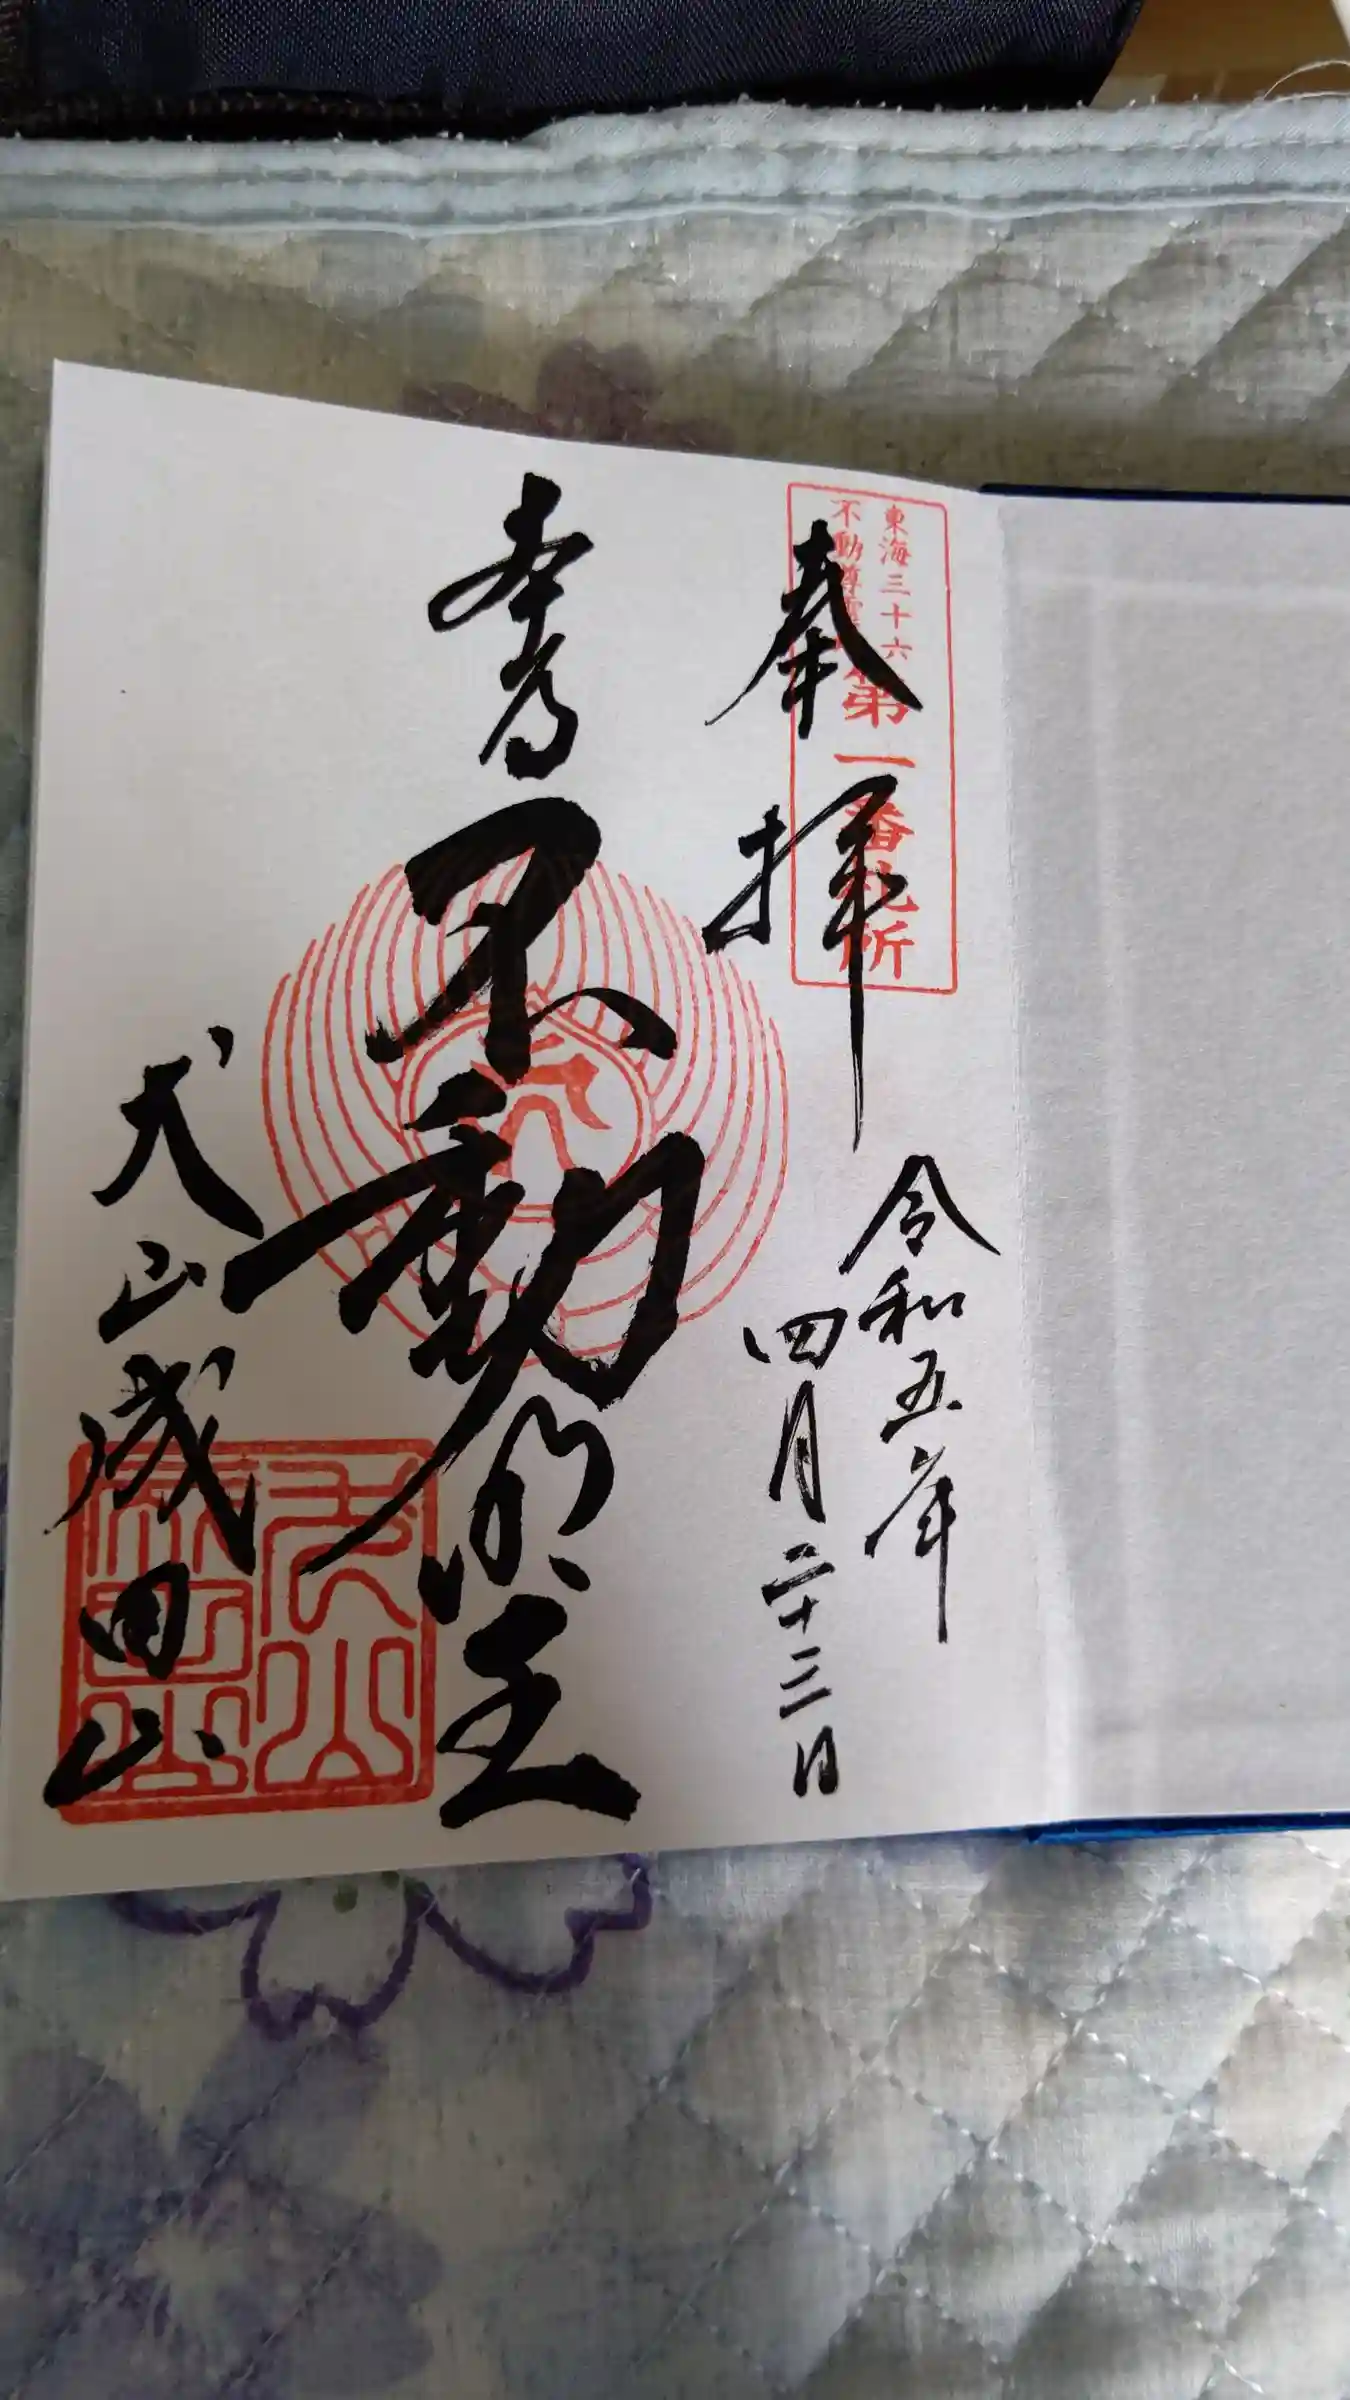 東海三十六
不動尊霊
第一番札所
奉拝
令和五年
四月二十三日
本尊
不動明王
犬山成田山